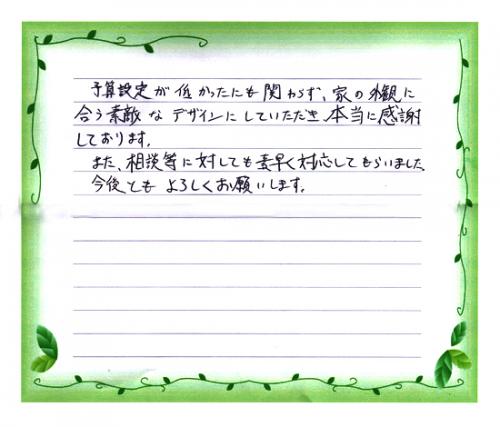 予算設定が低かったにも関わらず、家の外観に
合う素敵なデザインにしていただき、本当に感謝
しております。
また、相談等に対しても素早く対応してもらいました。
今後ともよろしくお願いします。